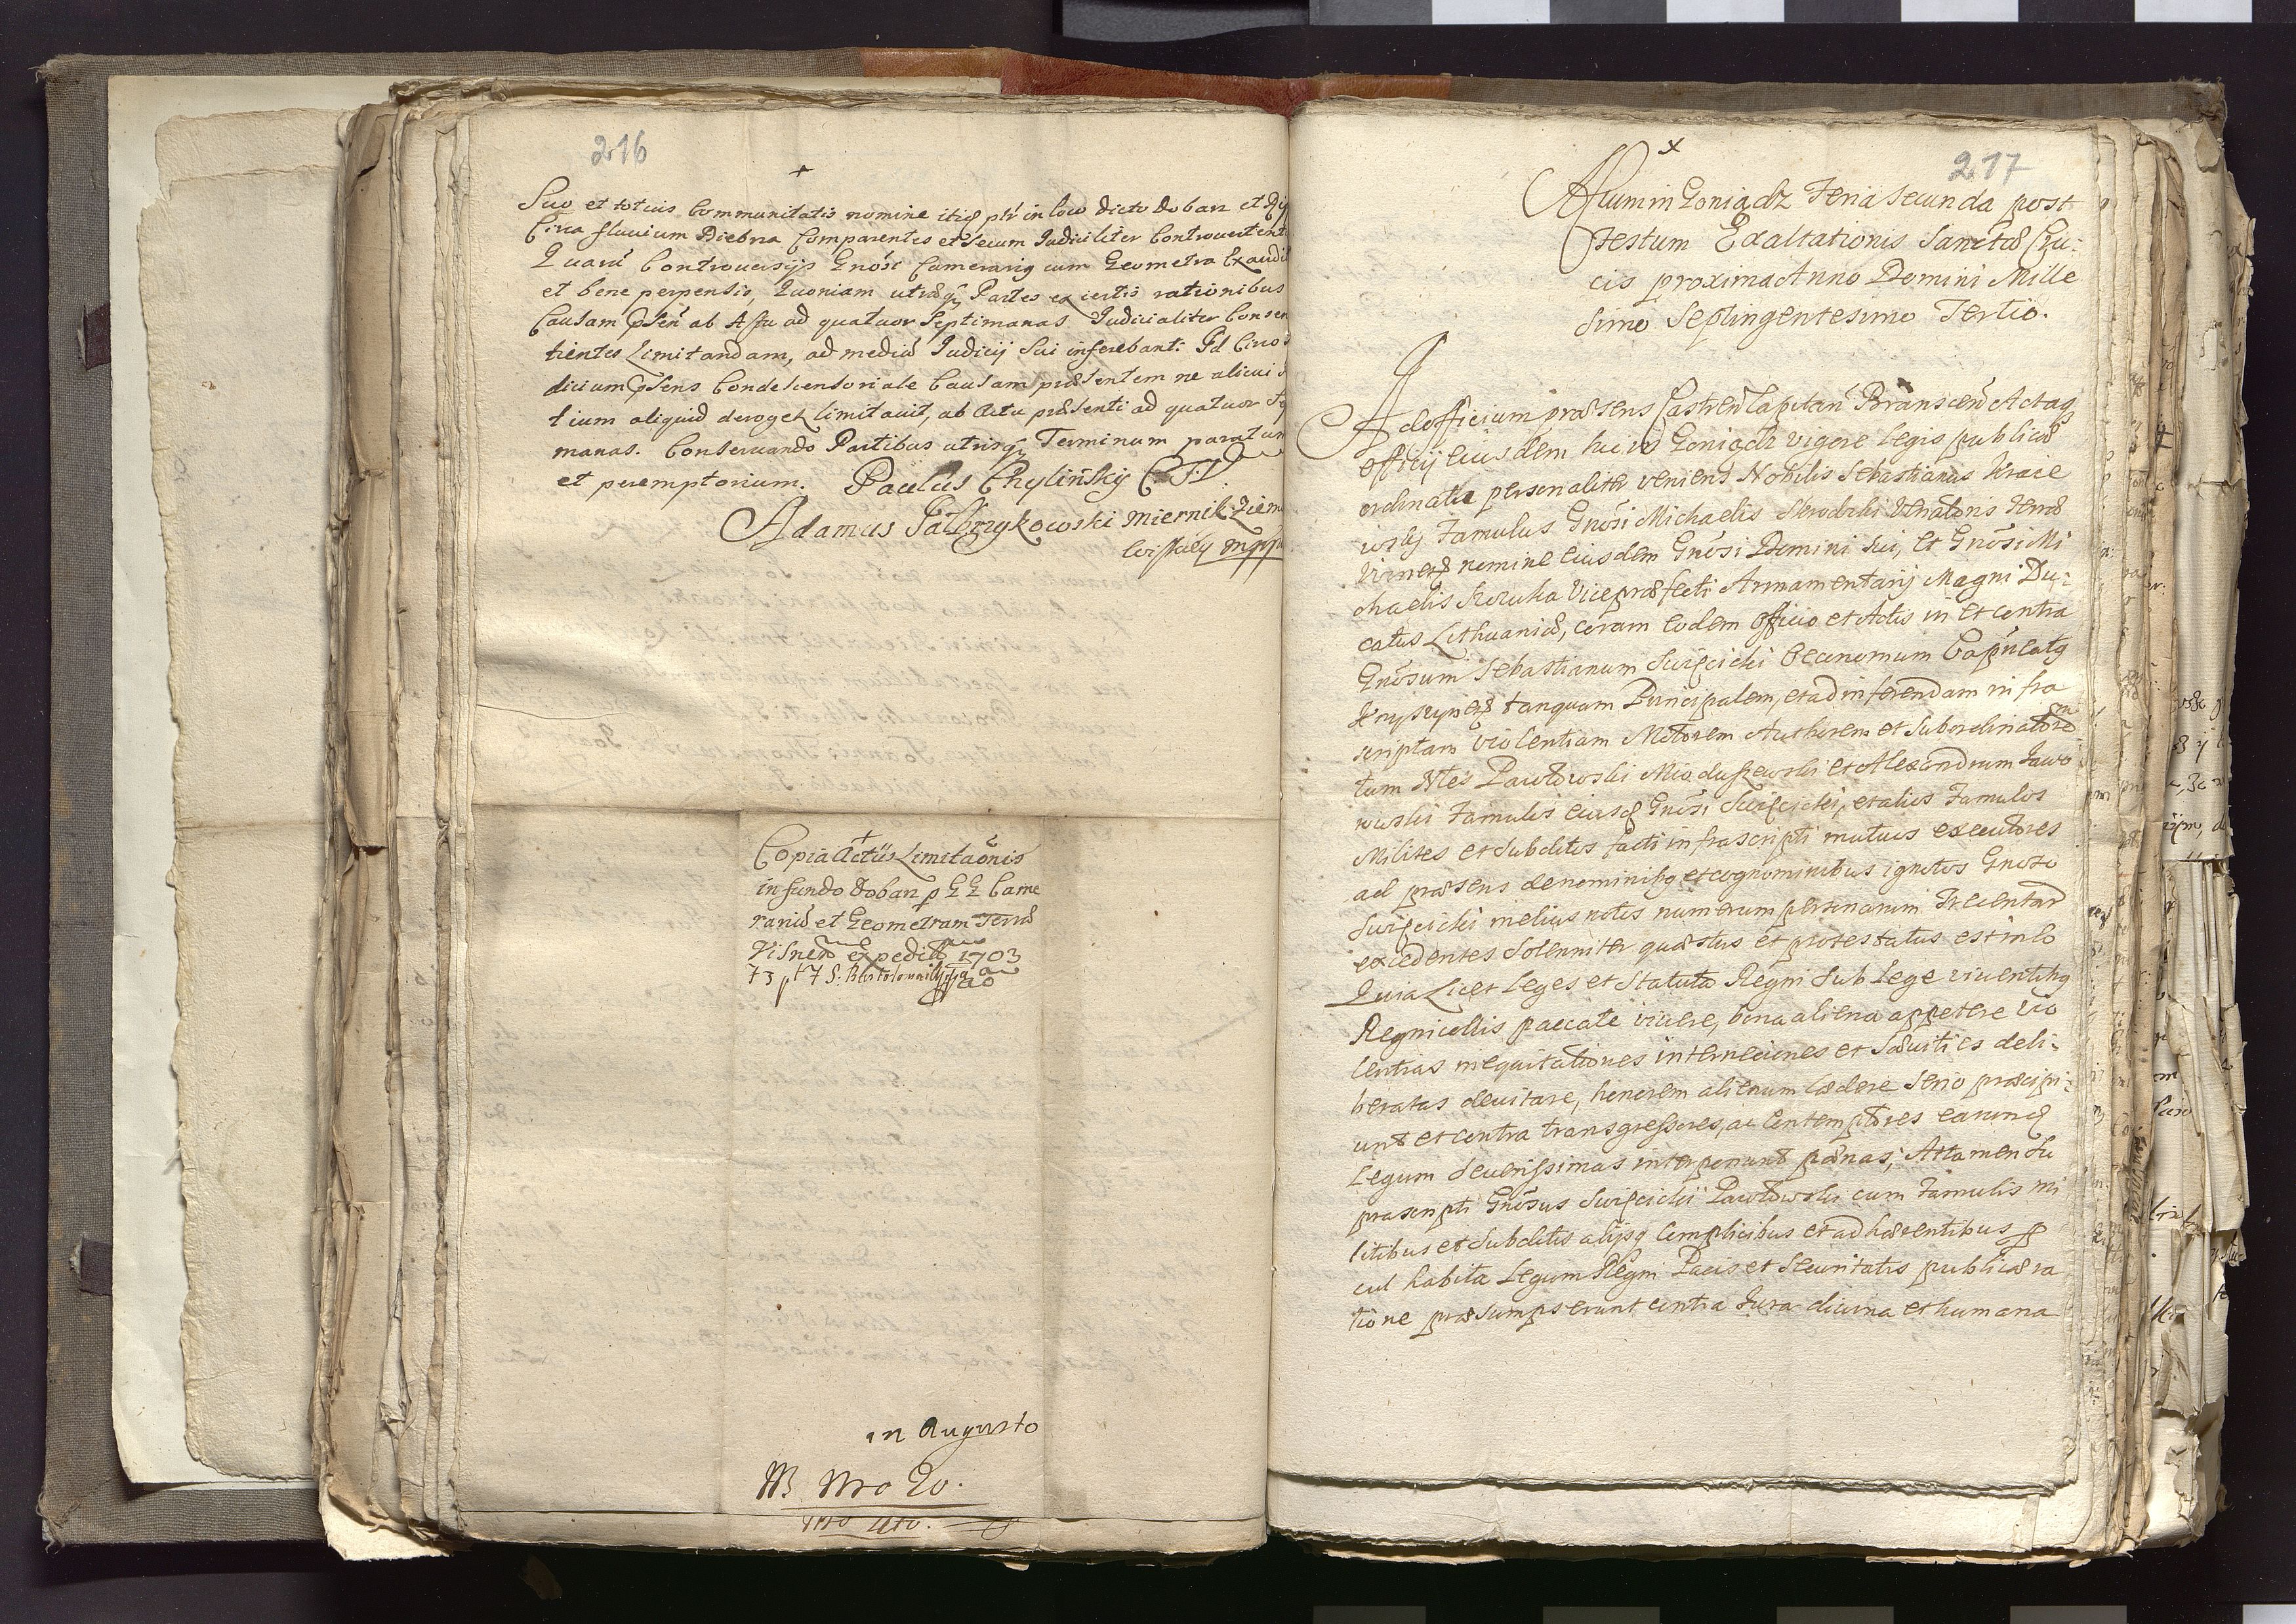 216
Suo et totius Communitatis nomine itidē in loco dicto Dobarz et
Circa fluvium Biebrza Comparentes et Secum Judicialiter Controvertent
Quarū Controversijs Gnōsi Camerarig cum Geometra Exaudi
et bene perpensis, Quoniam utræq Partes ex certis rationibus
Causam pñsen ab Actu ad quatuor Septimanas Judicialiter Consen
tientes Limitandam, ad mediū Judicij Sui inferebant: Id Circo
dicium pñsens Condescensoriale Causam præsentem ne alicui
tium aliquid deroget limitavit, ab Actu præsenti ad quatuor
manas. Conservando Partibus utrisq Terminum
et peremptorium. Paulus Chylińsky
Adamus miernik Ziem
mpp
Copia Actūs Limitaōnis
in fundo Dobarz p G G Came
rariū et Geometram Terræ
Visneñ expedit 1703
in Augusto
Nro 20.
217
Actum in Goniądz Feria secunda post
Festum Exaltationis Sanctæ Cru-
cis proxima Anno Domini Mille
simo Septingentesimo Tertio.
Ad officium præsens Castren Capitan Branscen Actaq
officij eiusdem huius Goniądz vigore legis publicæ
ordinata personaliter veniens Nobilis Sebastianus Kraie
wsky Famulus Gnōsi Michaelis Skrodzki Venatoris Terræ
nomine eiusdem Gnōsi Domini sui, et Gnōsi Mi
chaelis Vicepræfecti Armamentarij Magni Du-
catus Lithuaniæ, coram eodem officio et Actis in et contra
Gnōsum Sebastianum Swięcicki Œconomum
tanquam Principalem, et ad inferendam infra
scriptam violentiam Motorem Authorem et Subordinatorē
tum Nles Pawłowski Mioduszewski et Alexandrum Jawo
rowski Famulos eiusd Gnōsi Swięcicki, et alios Famulos
Milites et Subditos facti infrascripti mutuos executores
ad præsens de nominibq et cognominibus ignotos Gnoso
Swięcicki melius notos numerum personarum Trecentarū
excedentes Solenniter quæstus et protestatus est in eo
Quia Licet Leges et Statuta Regni sub Lege viventibq
Regnicollis paccate vivere, bona aliena appetere vio
lentias inequitationes interneciones et Sævities deli-
beratas devitare, honorem alienum lædere serio præcipi-
unt et contra transgressores, ac Contemptores earund
Legum severissimas interponunt pœnas; Attamen su
prascripti Gnōsus Swięcicki Pawłowski cum Famulis mi
litibus et Subditis alijsq Complicibus et adhærentibus p
cul habita Legum Regni Pacis et Securitatis publicæ ra
tione præsumpserunt contra Jura divina et humana